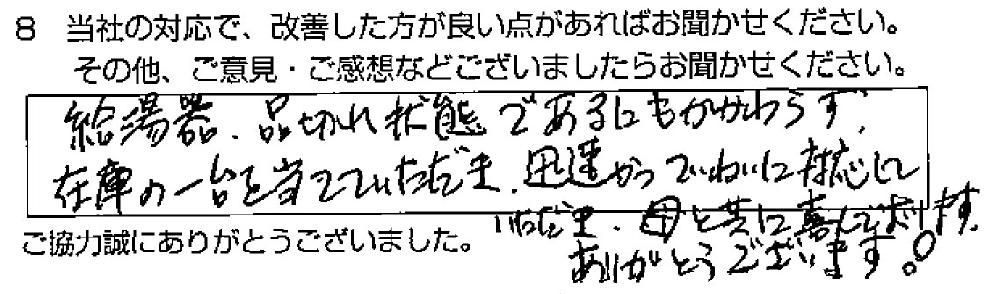 8 当社の対応で、改善した方が良い点があればお聞かせください。
その他、ご意見・ご感想などございましたらお聞かせください。
給湯器、品切れ状態であるにもかかわらず、
在庫の一台を当てていただき、迅速かつていねいに対応して
いただき、母と共に喜んでおります。
ご協力誠にありがとうございました。
ありがとうございます。